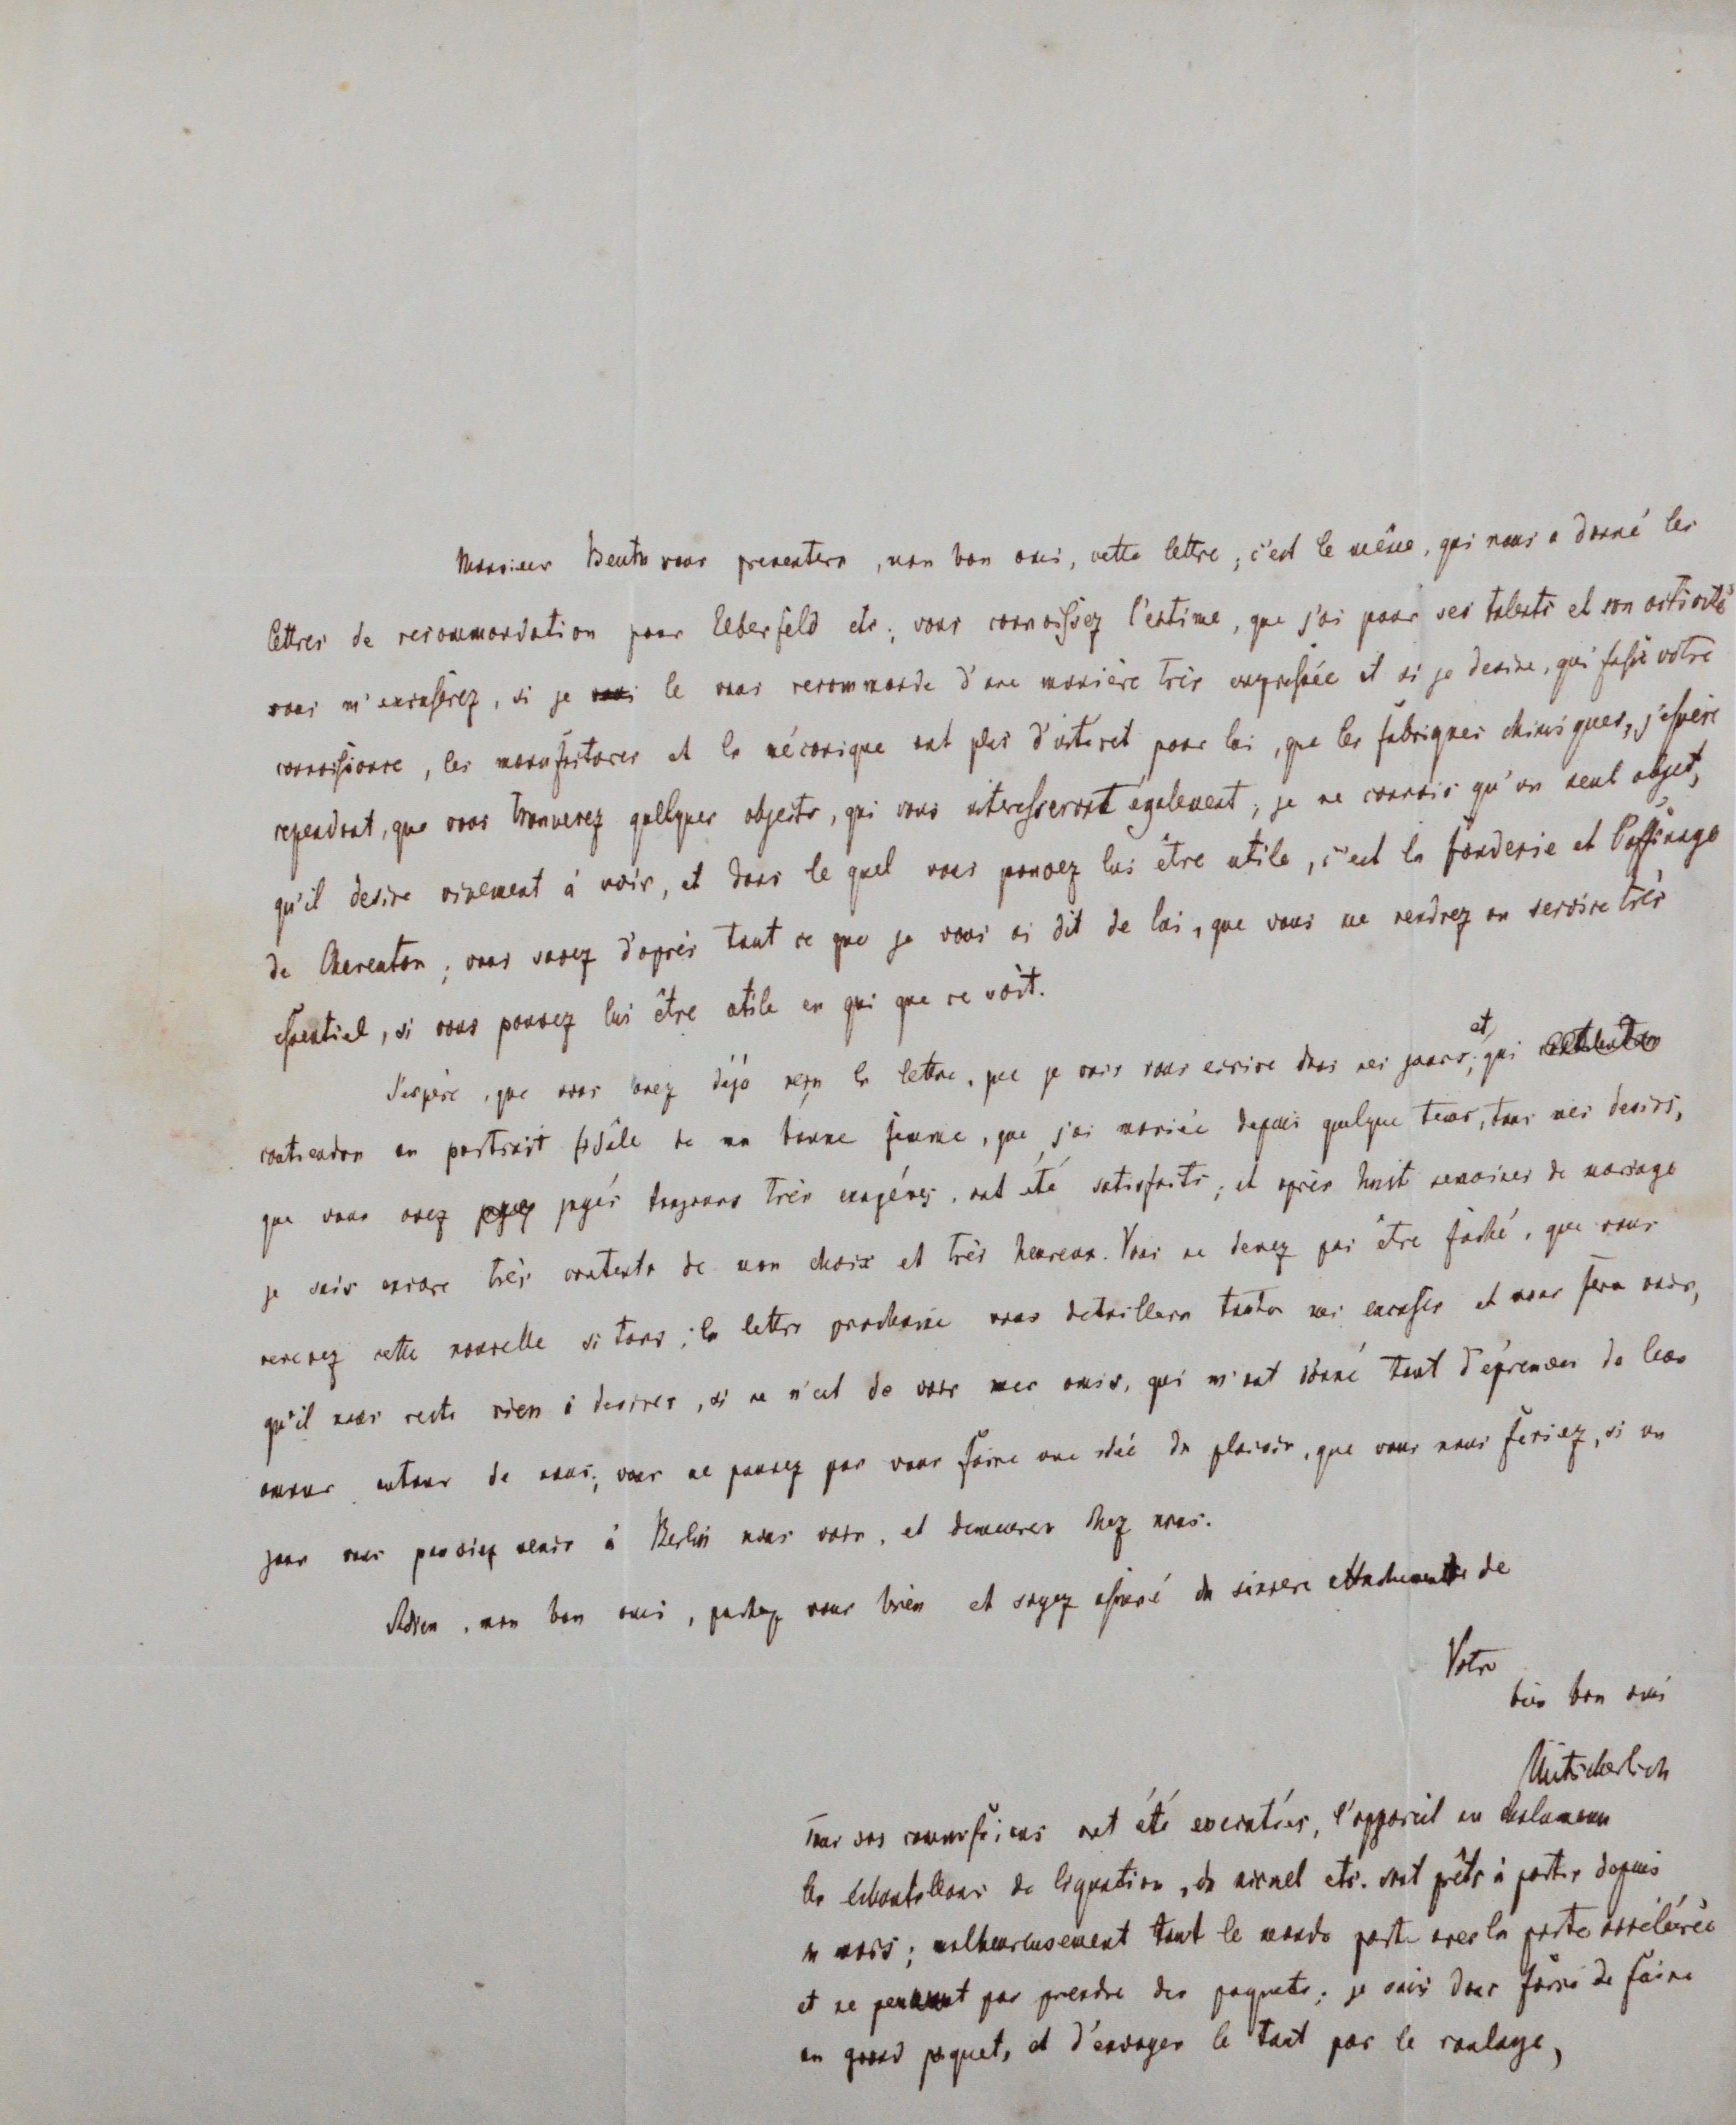 Monsieur Beuth vous presentera, mon bon ami, cette lettre; c'est le même, qui nous a donné les
lettres de recommandation pour Elberfeld etc; vous connoissez l'estime, que j'ai pour ses talents et son activité
vous m'excuserez, si je le vous recommande d'une manière très empressée et si je desire, qui fasse votre
connoissance, les manufactures et la mécanique ont plus d'interet pour lui, que les fabriques chimiques, j'espère
cependant, que vous trouverez quellques objects, qui vous interesseront également; je ne connois qu'un seul objet,
qu'il desire vivement à voir, et dans le quel vous pouvez lui être utile, c'est la fonderie et l'affinage
de Charenton; vous savez d'après tout ce que je vous ai dit de lui, que vous me rendrez un service très
essentiel, si vous pouvez lui être utile en qui que ce soit.
J'espère, que vous avez déjà reçu la lettre, que je vais vous ecrire dans ces jours, et qui
contiendra un portrait fidèle de ma bonne femme, que j'ai mariée depuis quelque tems, tous mes desirs,
que vous avez jugés toujours très exagérés, ont été satisfaits; et après huit semaines de mariage
je suis encore très contente de mon choix et très heureux. Vous ne devez pas être faché, que vous
recevez cette nouvelle si tard; la lettre prochaine vous detaillera toutes mes excuses et vous fera voir,
qu'il nous reste rien à desirer, si ce n'est de voir mes amis, qui m'ont donné tant d'épreuves de leur
amour autour de nous; vous ne pouvez pas vous faire une idée du plaisir, que vous nous feriez, si un
jour vous pouviez venir à Berlin nous voir, et demeurer chez nous.
Adieu, mon bon ami, portez vous bien et soyez assuré du sincere attachement de
Votre
bien bon ami
Mitscherlich
Tous vos commissions ont été executées, l'appareil en
les échantillons de liquation, du nickel etc. sont prêts à partir depuis
un mois; malheureusement tout le monde part avec la poste accélérée
et ne peuvent pas prendre des paquets; je suis donc forcé de faire
un grand paquet, et d'envoyer le tout par le roulage,